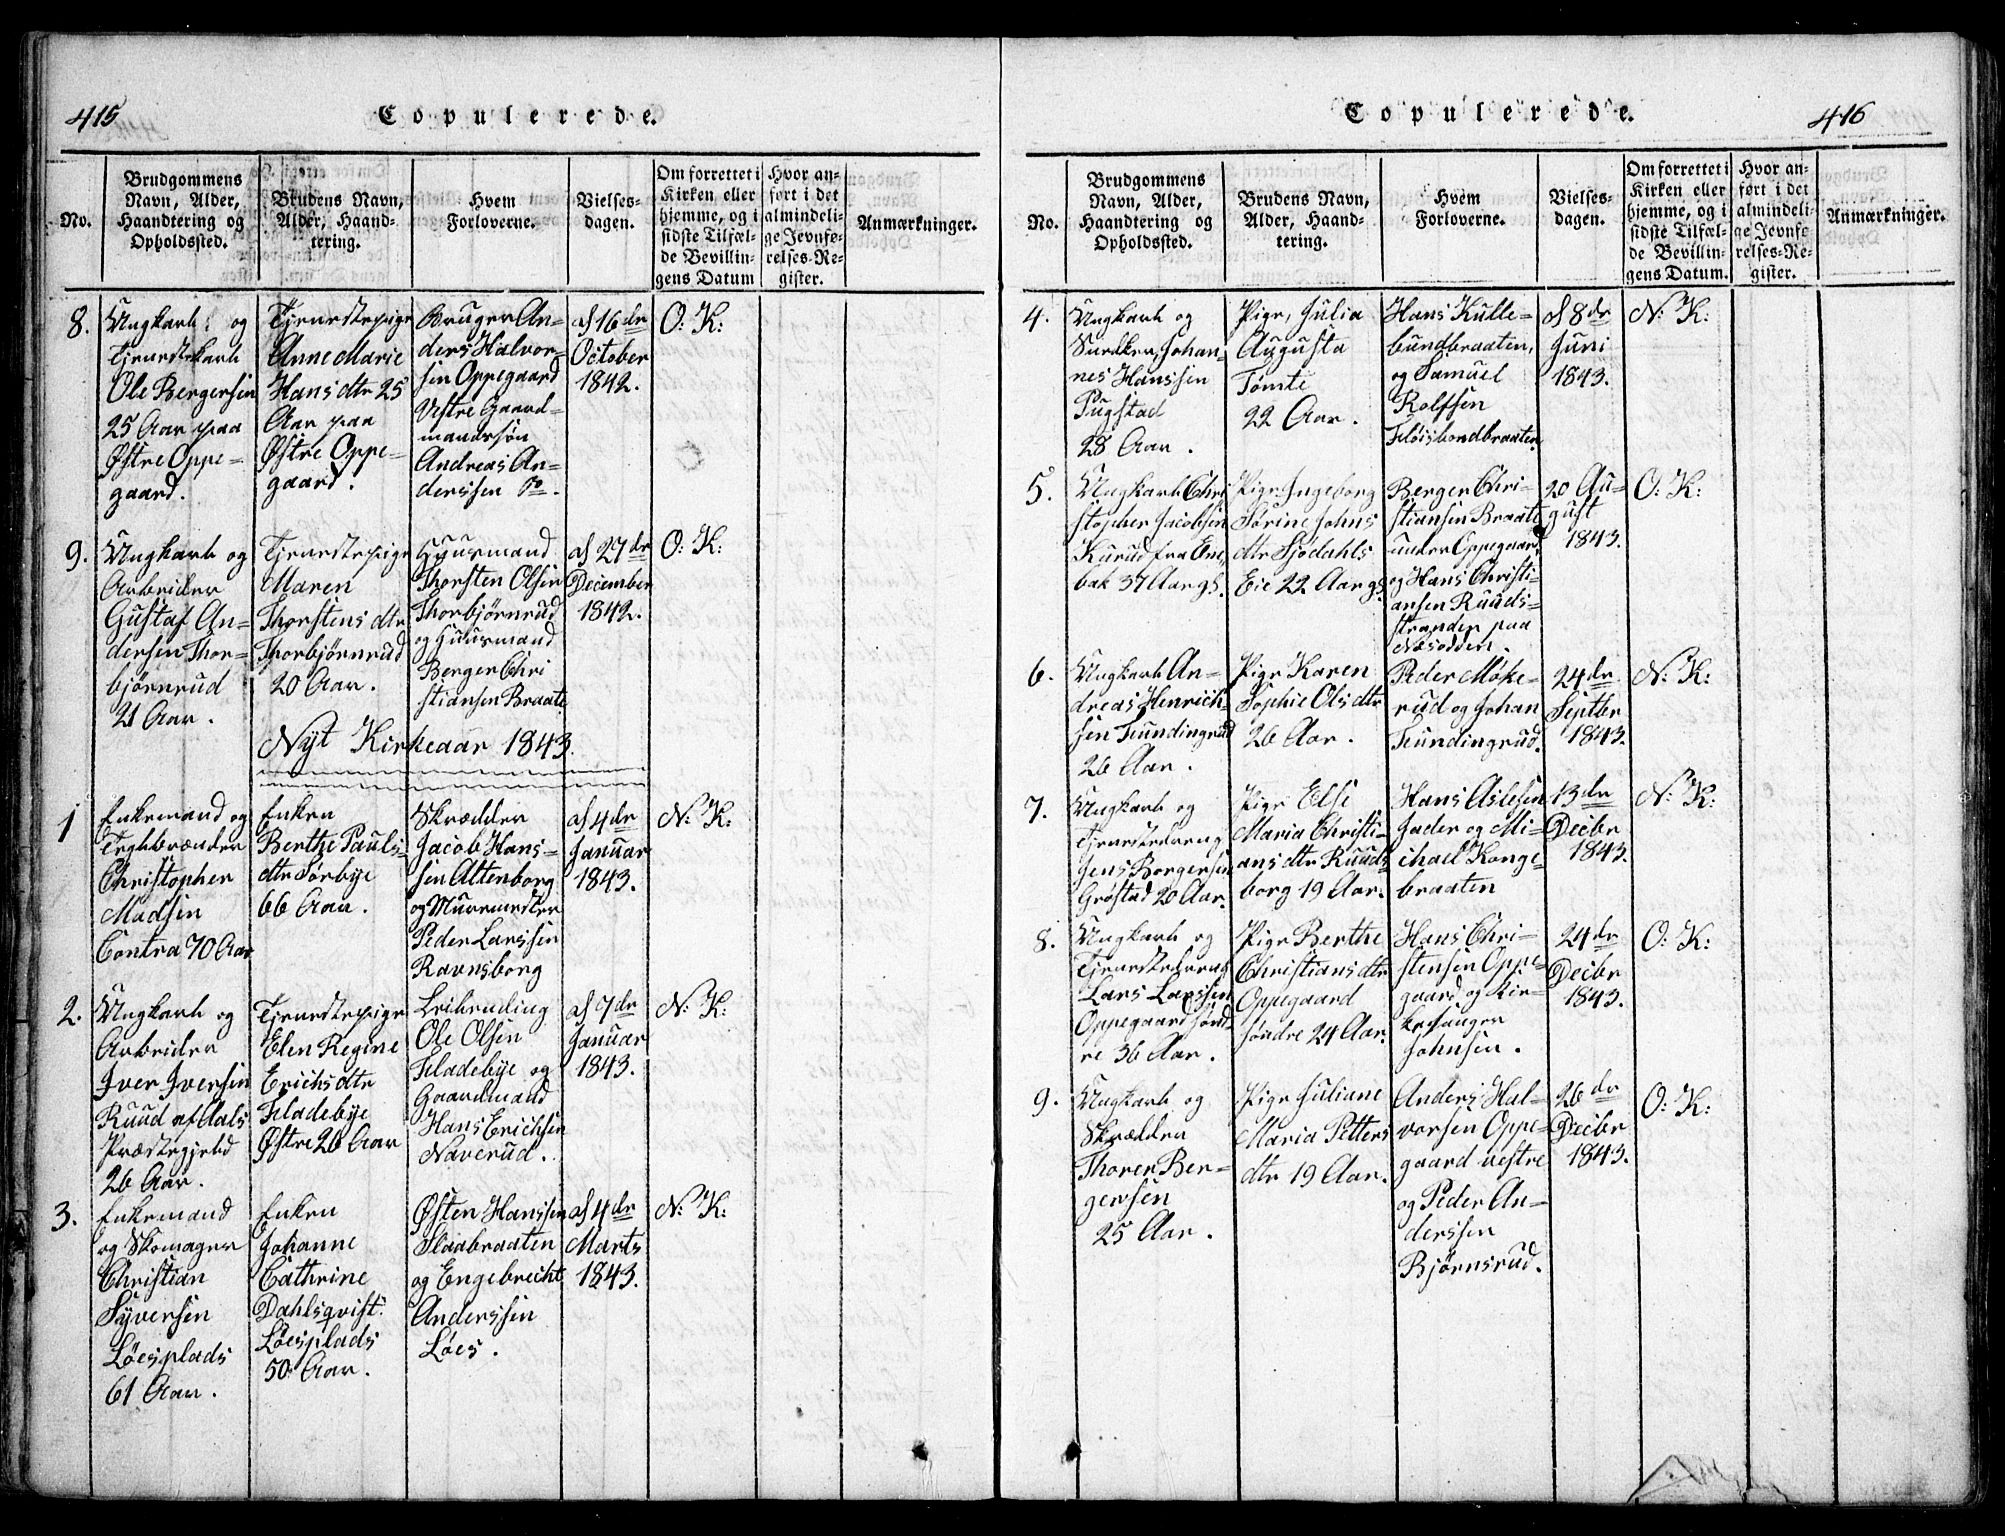 415
Copulerede.
No.
Brudgommens
Navn, Alder,
Haandtering og
Opholdssted.
Brudens Navn,
Alder, Haand-
tering.
Hvem
Forloverne.
Vielses-
dagen.
Om forrettet i
Kirken eller
hjemme, og i
sidste Tilfæl-
de Bevillin-
gens Datum
Hvor an-
ført i det
almindeli-
ge Jevnfø-
relses-Re-
gister.
Anmærkninger.
8.
Ungkarl og
Tjenestekarl
Ole Bergersen
25 Aar paa
Østre Oppe-
gaard.
Tjenestepige
Anne Marie
Hansdtr 25
Aar paa
Østre Oppe-
gaard.
Bruger An-
ders Halvor-
sen Oppegaard
Vestre Gaard-
mandssøn
Andreas An-
derssen Do.
af 16de
October
1842.
O: K:
9.
Ungkarl og
Arbeider
Gustaf An-
dersen Thor-
bjørnrud
21 Aar.
Tjenestepige
Maren
Thorstensdtr
Thorbjørnrud
20 Aar.
Huusmand
Thorsten Olsen
Thorbjørnrud
og Huusmand
Berger Chri
stiansen Braate
af 27de
December
1842.
O: K:
Nyt Kirkeaar 1843.
1
Enkemand og
Teglbrænder
Christopher
Madsen
Contra 70 Aar
Enken
Berthe Pauls-
dtr Sørbye
66 Aar.
Skrædder
Jacob Hans-
sen Altenborg
og Muurmester
Peder Larssen
Ravnsborg
af 4de
Januar
1843.
N: K:
2.
Ungkarl og
Arbeider
Iver Iversen
Ruud af Aals
Præstegjeld
26 Aar.
Tjenestepige
Elen Regine
Erichsdtr
Fladebye
Østre 26 Aar
Leilending
Ole Olsen
Fladebye og
Gaardmand
Hans Erichsen
Naverud.
af 7de
Januar
1843.
N: K:
3.
Enkemand
og Skomager
Christian
Syversen
Løesplads
61 Aar.
Enken
Johanne
Cathrine
Dahlsqvist.
Løesplads
50 Aar.
Østen Hanssen
Slaabraaten
og Engebrecht
Anderssen
Løes.
af 4de
Marts
1843.
N: K:
Copulerede.
416
No.
Brudgommens
Navn, Alder,
Haandtering og
Opholdssted.
Brudens Navn,
Alder, Haand-
tering.
Hvem
Forloverne.
Vielses-
dagen.
Om forrettet i
Kirken eller
hjemme, og i
sidste Tilfæl-
de Bevillin-
gens Datum.
Hvor an-
ført i det
almindeli-
ge Jevnfø
relses-Re-
gister.
Anmærkninger.
4.
Ungkarl og
Snedker, Johan-
nes Hanssen
Pugstad
28 Aar.
Pige, Julia
Augusta
Tømte
22 Aar.
Hans Kulle-
bundbraaten,
og Samuel
Rolfsen
Fløisbondbraaten
af 8de
Juni
1843.
N: K:
5.
Ungkarl Chri
stopher Jacobsen
Kurud fra Ene
bak 37 Aar gl.
Pige Ingeborg
Sørine Johns
dtr Sjødahls
Eie 22 Aar gl.
Berger Chri-
stiansen Braate
under Oppegaard
og Hans Christi-
ansen Ruuds-
stranden paa
Næsodden.
20 Au-
gust
1843.
O: K:
6.
Ungkarl An-
dreas Henrich-
sen Tuundingrud
26 Aar.
Pige Karen
Sophie Olsdtr
26 Aar.
Peder Møke-
rud og Johan
Tuundingrud.
24de
Septbr
1843.
N: K:
7.
Ungkarl og
Tjenestedreng
Jens Borgersen
Grøstad 20 Aar.
Pige Elise
Maria Christi-
ansdtr Ruuds
borg 19 Aar.
Hans Aslesen
Jader og Mi-
chael Konge-
braaten
13de
Decbr
1843.
N: K:
8.
Ungkarl og
Tjenestedreng
Lars Larssen
Oppegaard sønd-
re 36 Aar.
Pige Berthe
Christiansdtr
Oppegaard
søndre 24 Aar.
Hans Chri-
stensen Oppe-
gaard og Kir-
kesanger
Johnsen.
24de
Decbr
1843.
O: K:
9.
Ungkarl og
Skrædder
Thorer Ber-
gersen
25 Aar.
Pige Juliane
Maria Petters
dtr 19 Aar.
Anders Hal-
vorsen Oppe-
gaard vestre
og Peder An-
derssen
Bjørnsrud.
26de
Decbr
1843.
O: K: